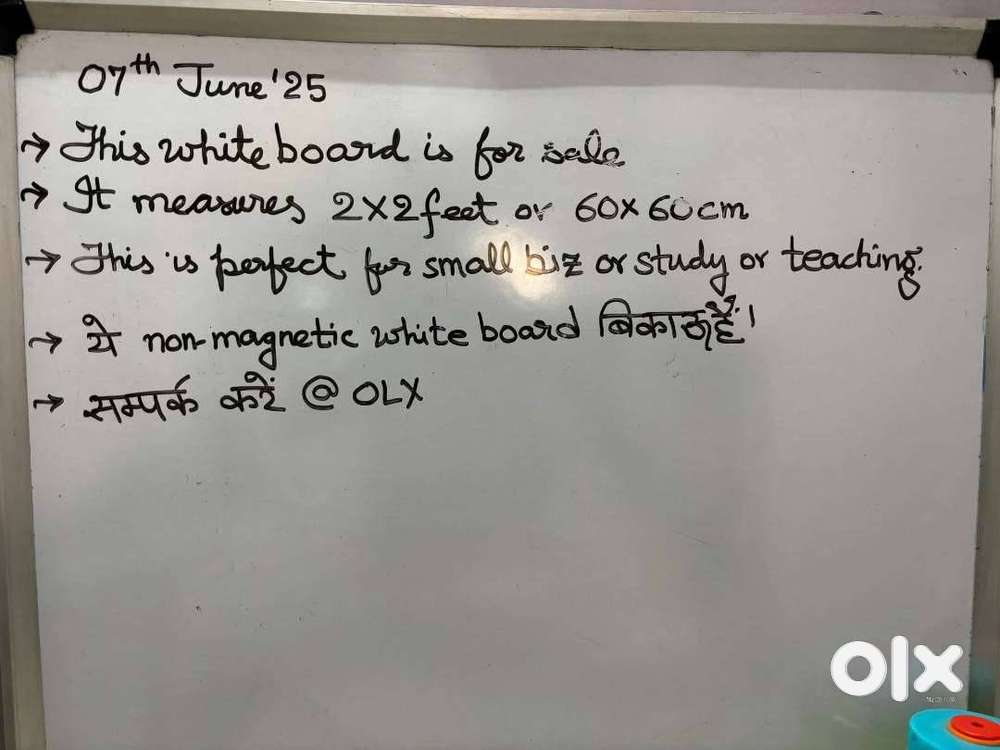 07th June '25
→ This white board is for sale
→ It measures 2x2 feet or 60x60cm
→ This is perfect for small biz or study or teaching.
→ ये non-magnetic white board बिकाऊ हैं।
→ सम्पर्क करें @ OLX
olx